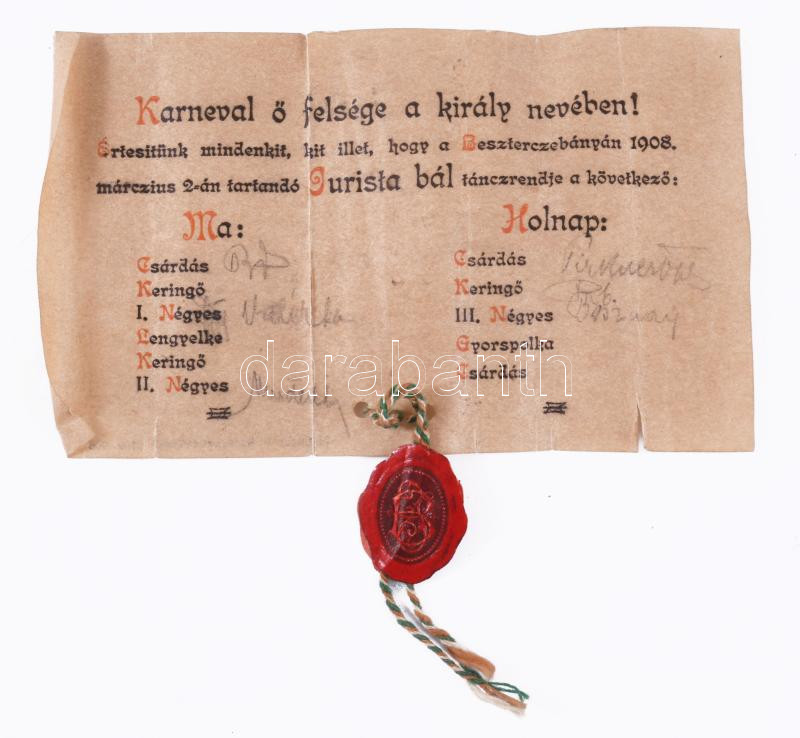 Karneval ő felsége a király nevében!
Értesitünk mindenkit, kit illet, hogy a Beszterczebányán 1908.
márczius 2-án tartandó Jurista bál tánczrendje a következő:
Ma:
Csárdás
Keringő
I. Négyes
Lengyelke
Keringő
II. Négyes
Holnap:
Csárdás
Keringő
III. Négyes
Gyorspolka
Csárdás
darabanth